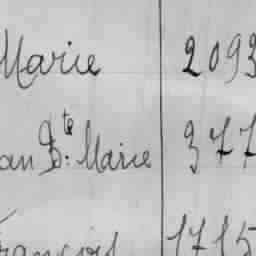 Marie 2093
an Bte Marie 377
François 1715